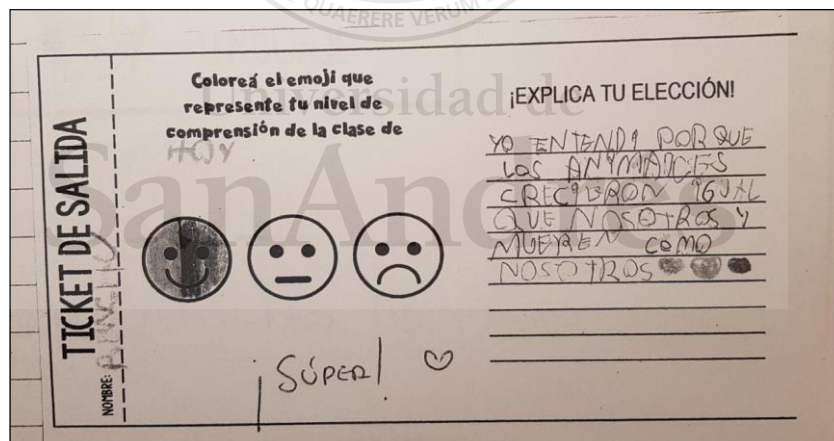 QUAERERE VERUM
Universidad de
SanAndrés
TICKET DE SALIDA
NOMBRE:
Coloreá el emoji que
represente tu nivel de
comprensión de la clase de
HOY
¡SÚPER!
¡EXPLICA TU ELECCIÓN!
YO ENTENDI PORQUE
LOS ANYMALCES
CRECIERON IGUAL
QUE NOSOTROS Y
MUEREN COMO
NOSOTROS